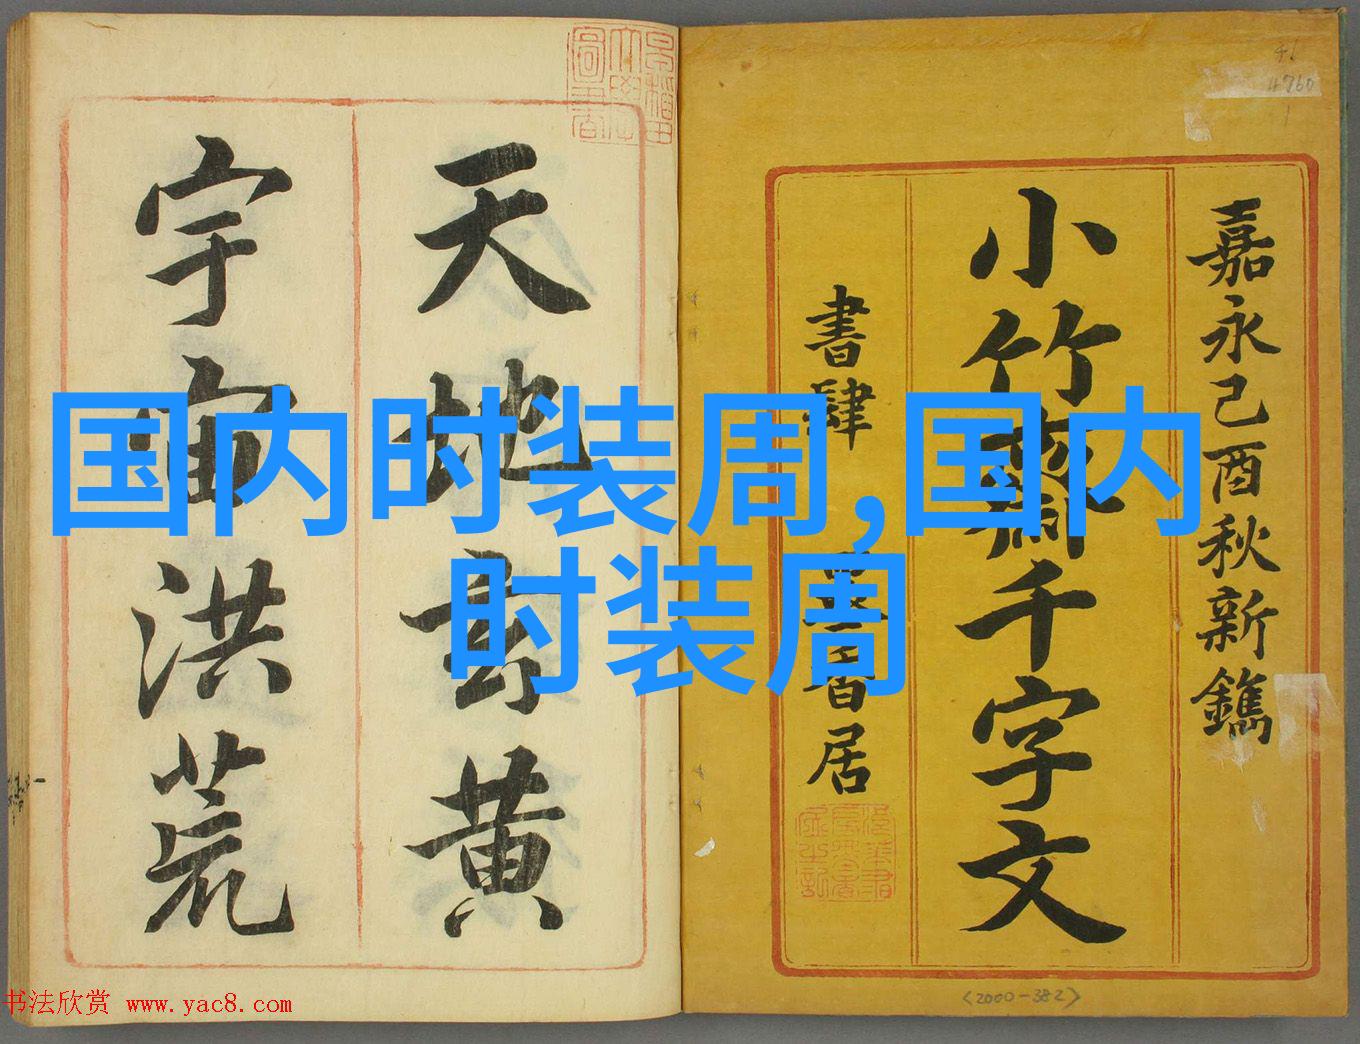 嘉永己酉秋新鐫
小竹齋千字文
書肆 墨香居
天地玄黄
宇宙洪荒
国内时装周,国内
时装周
41
4760
<2000-382>
书法欣赏 www.yac8.com